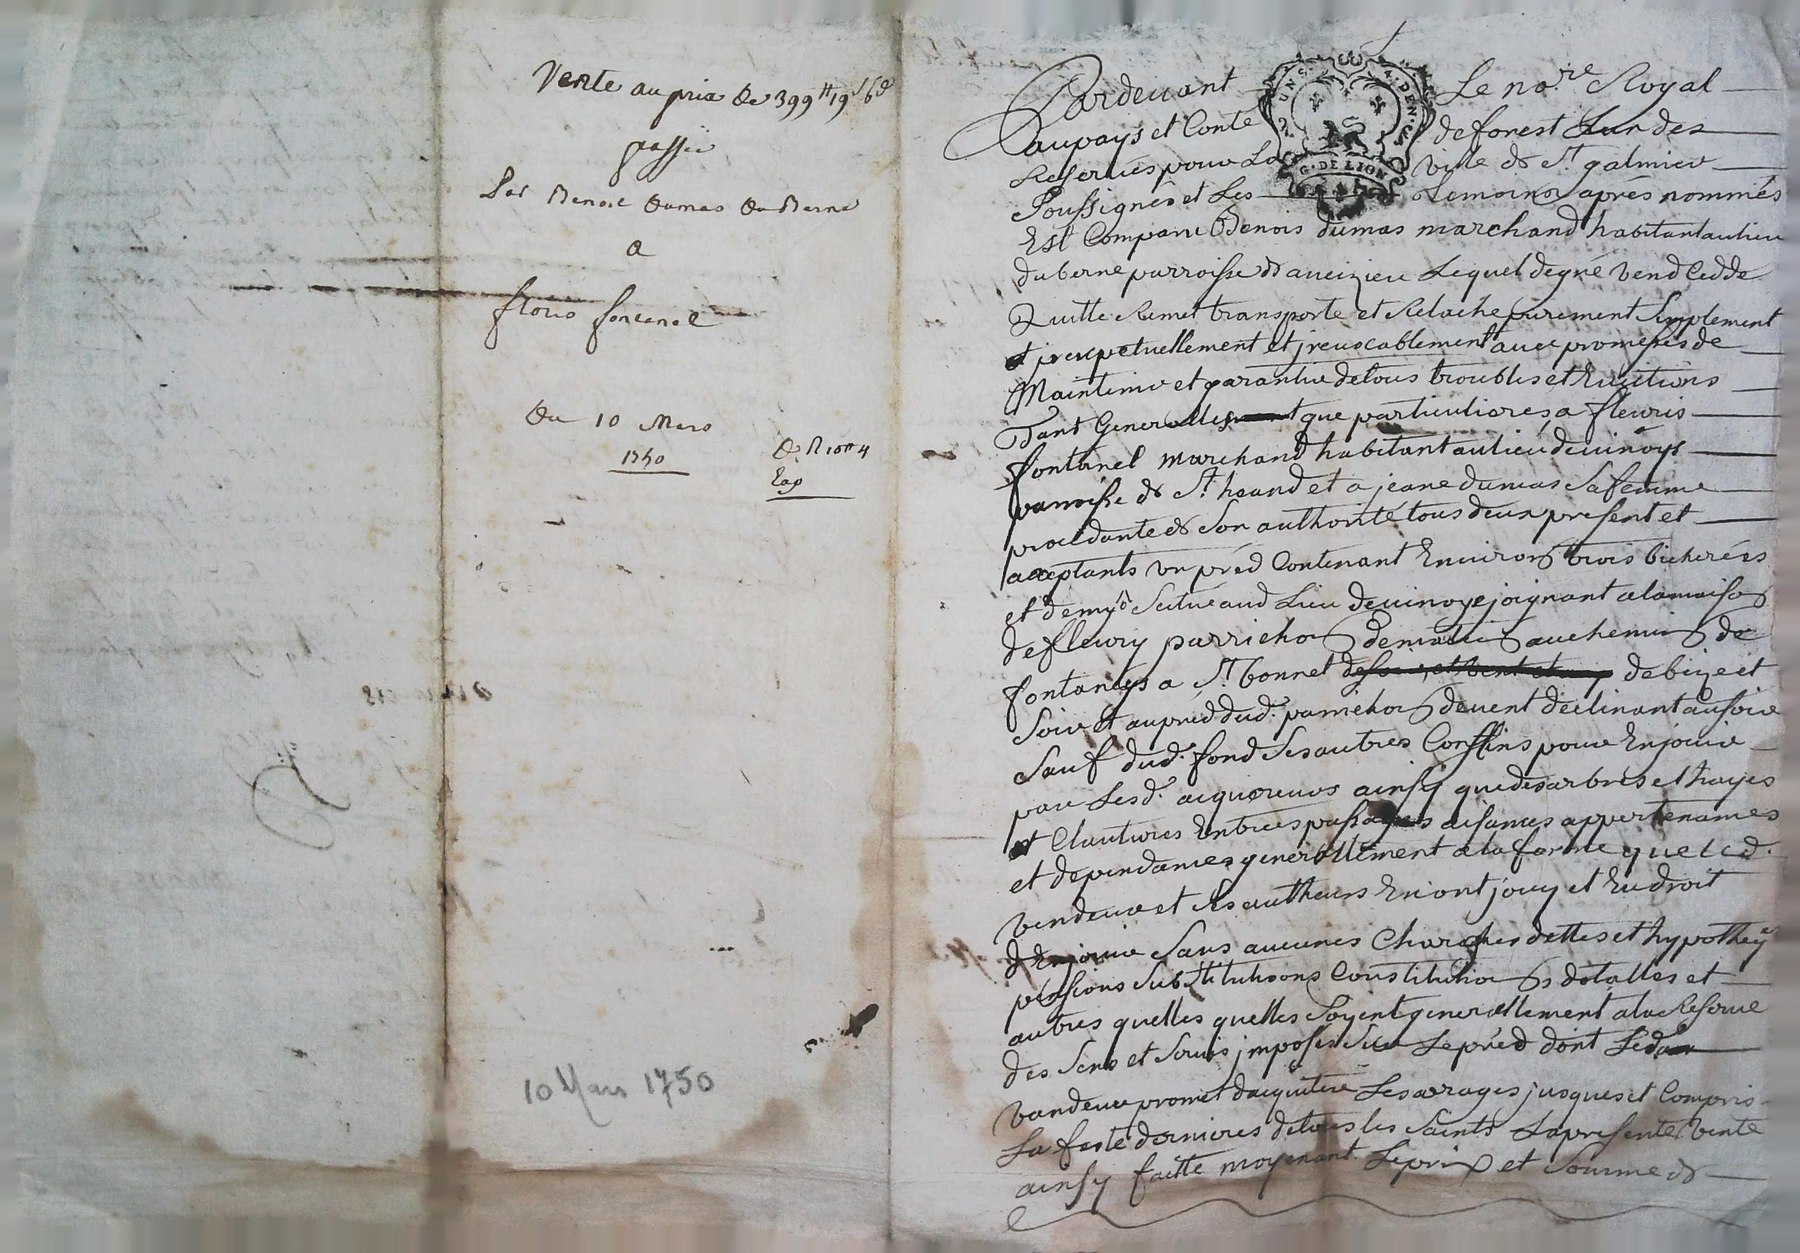 Vente au prix de 399 ₶ 19 s 6 d
passée
Par Benoit dumas du Berne
a
fleuris fontanel
Du 10 Mars
1750
10 Mars 1750
UN S. 4. DEN.
G. DE LION
Pardevant Le nore Royal
au pays et Conté de forest L'un des
Reservés pour La ville de St galmier
Soussigné et Les temoins après nommés
Est Comparu Benois dumas marchand habitant au lieu
du berne parroisse d'aveizieu Lequel de gré vend Cedde
Quitte Remet transporte et Relache purement Simplement
perpetuellement et jrevocablement avec promesses de
Maintenir et garantir de tous troubles et Evictions
Tant Generalles que particulieres a fleuris
fontanel marchand habitant au lieu de vinoys
parroisse de St heand et a jeane dumas Sa femme
procedante de Son authorité tous deux present et
acceptants un préd Contenant Environ trois bicherées
et demy Scitué aud Lieu de vinoye joignant a la maison
de fleury parrichon de matin au chemin de
fontaneys a St bonnet de bize et
Soir Et au pred dud. parrichon de vent declinant au soir
Sauf dud. fond Ses autres Conffins pour En jouir
par Lesd. acquereurs ainsy que des arbres et hayes
Clautures Entrées passages aisances appartenances
et dependances generallement a la forme que led.
vendeur et Ses autheurs En ont jouy et Eu droit
d'En jouir Sans aucunes Charges dettes et hypotheqs
pensions Substitutions Constitutions dotalles et
autres quelles quelles Soyent generallement a la Reserve
des Sens et Servis jmposés Sur Le préd dont Led
vandeur promet d'acquitter Les arrages jusques et Compris
La feste derniere de tous les Saints La presente vente
ainsy faitte moyenant Le prix et Somme de